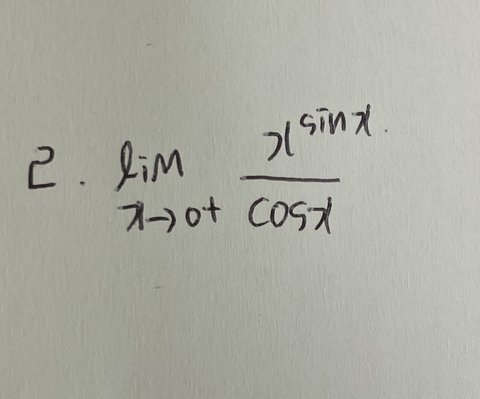 2. lim x→0+ x^sin x / cos x